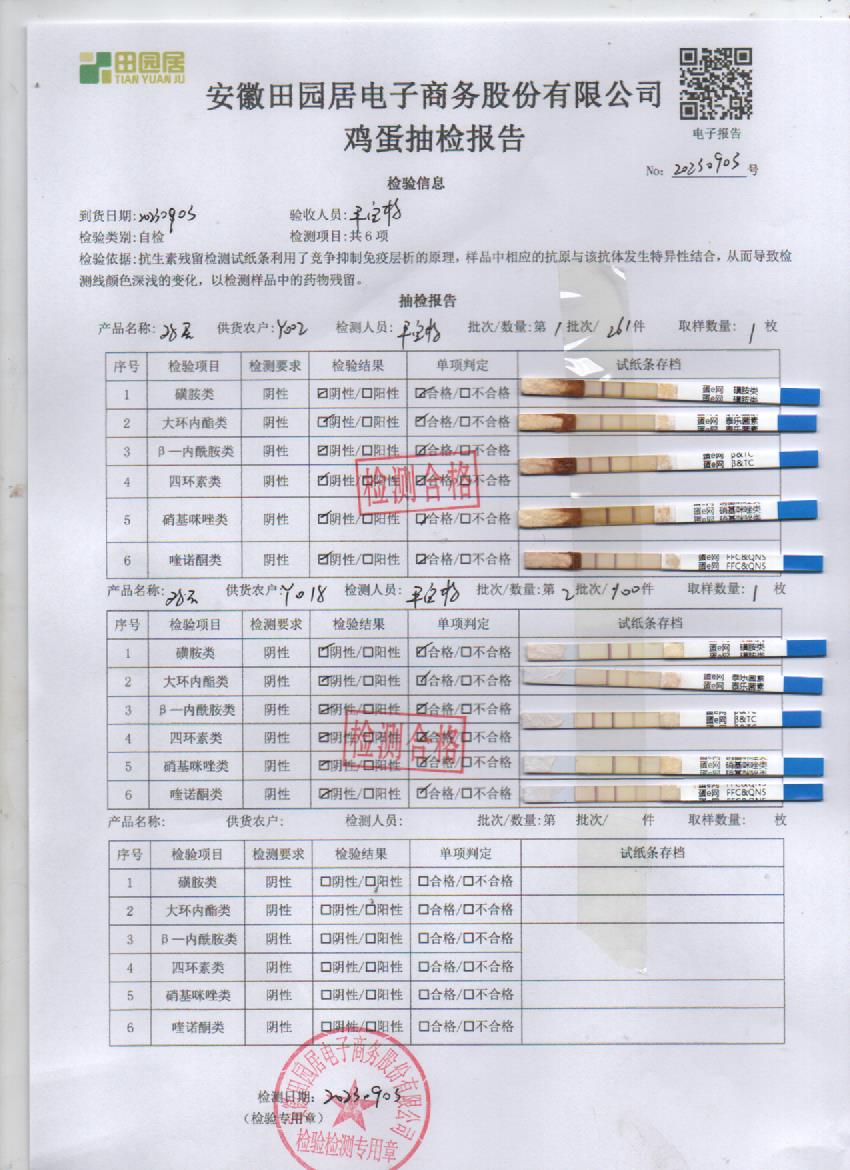 田园居
TIAN YUAN JU
安徽田园居电子商务股份有限公司
鸡蛋抽检报告
电子报告
No: 20230903 号
检验信息
到货日期:20230903 验收人员:
检验类别:自检 检测项目:共6项
检验依据:抗生素残留检测试纸条利用了竞争抑制免疫层析的原理，样品中相应的抗原与该抗体发生特异性结合，从而导致检
测线颜色深浅的变化，以检测样品中的药物残留。
抽检报告
产品名称: 供货农户:Y002 检测人员: 批次/数量:第1批次/261件 取样数量: 1 枚
序号 检验项目 检测要求 检验结果 单项判定 试纸条存档
1 磺胺类 阴性 ☑阴性/☐阳性 ☑合格/☐不合格 蛋e网 磺胺类
蛋e网 磺胺类
2 大环内酯类 阴性 ☑阴性/☐阳性 ☑合格/☐不合格 蛋e网 泰乐菌素
蛋e网 泰乐菌素
3 β—内酰胺类 阴性 ☑阴性/☐阳性 ☑合格/☐不合格 蛋e网 β&TC
蛋e网 β&TC
4 四环素类 阴性 ☑阴性/☐阳性 ☑合格/☐不合格
检测合格
5 硝基咪唑类 阴性 ☑阴性/☐阳性 ☑合格/☐不合格 蛋e网 硝基咪唑类
蛋e网 硝基咪唑类
6 喹诺酮类 阴性 ☑阴性/☐阳性 ☑合格/☐不合格 蛋e网 FFC&QNS
蛋e网 FFC&QNS
产品名称: 供货农户:Y018 检测人员: 批次/数量:第2批次/900件 取样数量: 1 枚
序号 检验项目 检测要求 检验结果 单项判定 试纸条存档
1 磺胺类 阴性 ☑阴性/☐阳性 ☑合格/☐不合格 蛋e网 磺胺类
蛋e网 磺胺类
2 大环内酯类 阴性 ☑阴性/☐阳性 ☑合格/☐不合格 蛋e网 泰乐菌素
蛋e网 泰乐菌素
3 β—内酰胺类 阴性 ☑阴性/☐阳性 ☑合格/☐不合格 蛋e网 β&TC
蛋e网 β&TC
4 四环素类 阴性 ☑阴性/☐阳性 ☑合格/☐不合格
检测合格
5 硝基咪唑类 阴性 ☑阴性/☐阳性 ☑合格/☐不合格 蛋e网 硝基咪唑类
蛋e网 硝基咪唑类
6 喹诺酮类 阴性 ☑阴性/☐阳性 ☑合格/☐不合格 蛋e网 FFC&QNS
蛋e网 FFC&QNS
产品名称: 供货农户: 检测人员: 批次/数量:第 批次/ 件 取样数量: 枚
序号 检验项目 检测要求 检验结果 单项判定 试纸条存档
1 磺胺类 阴性 ☐阴性/☐阳性 ☐合格/☐不合格
2 大环内酯类 阴性 ☐阴性/☐阳性 ☐合格/☐不合格
3 β—内酰胺类 阴性 ☐阴性/☐阳性 ☐合格/☐不合格
4 四环素类 阴性 ☐阴性/☐阳性 ☐合格/☐不合格
5 硝基咪唑类 阴性 ☐阴性/☐阳性 ☐合格/☐不合格
6 喹诺酮类 阴性 ☐阴性/☐阳性 ☐合格/☐不合格
安徽田园居电子商务股份有限公司
检测日期: 20230903
（检验专用章）
检验检测专用章